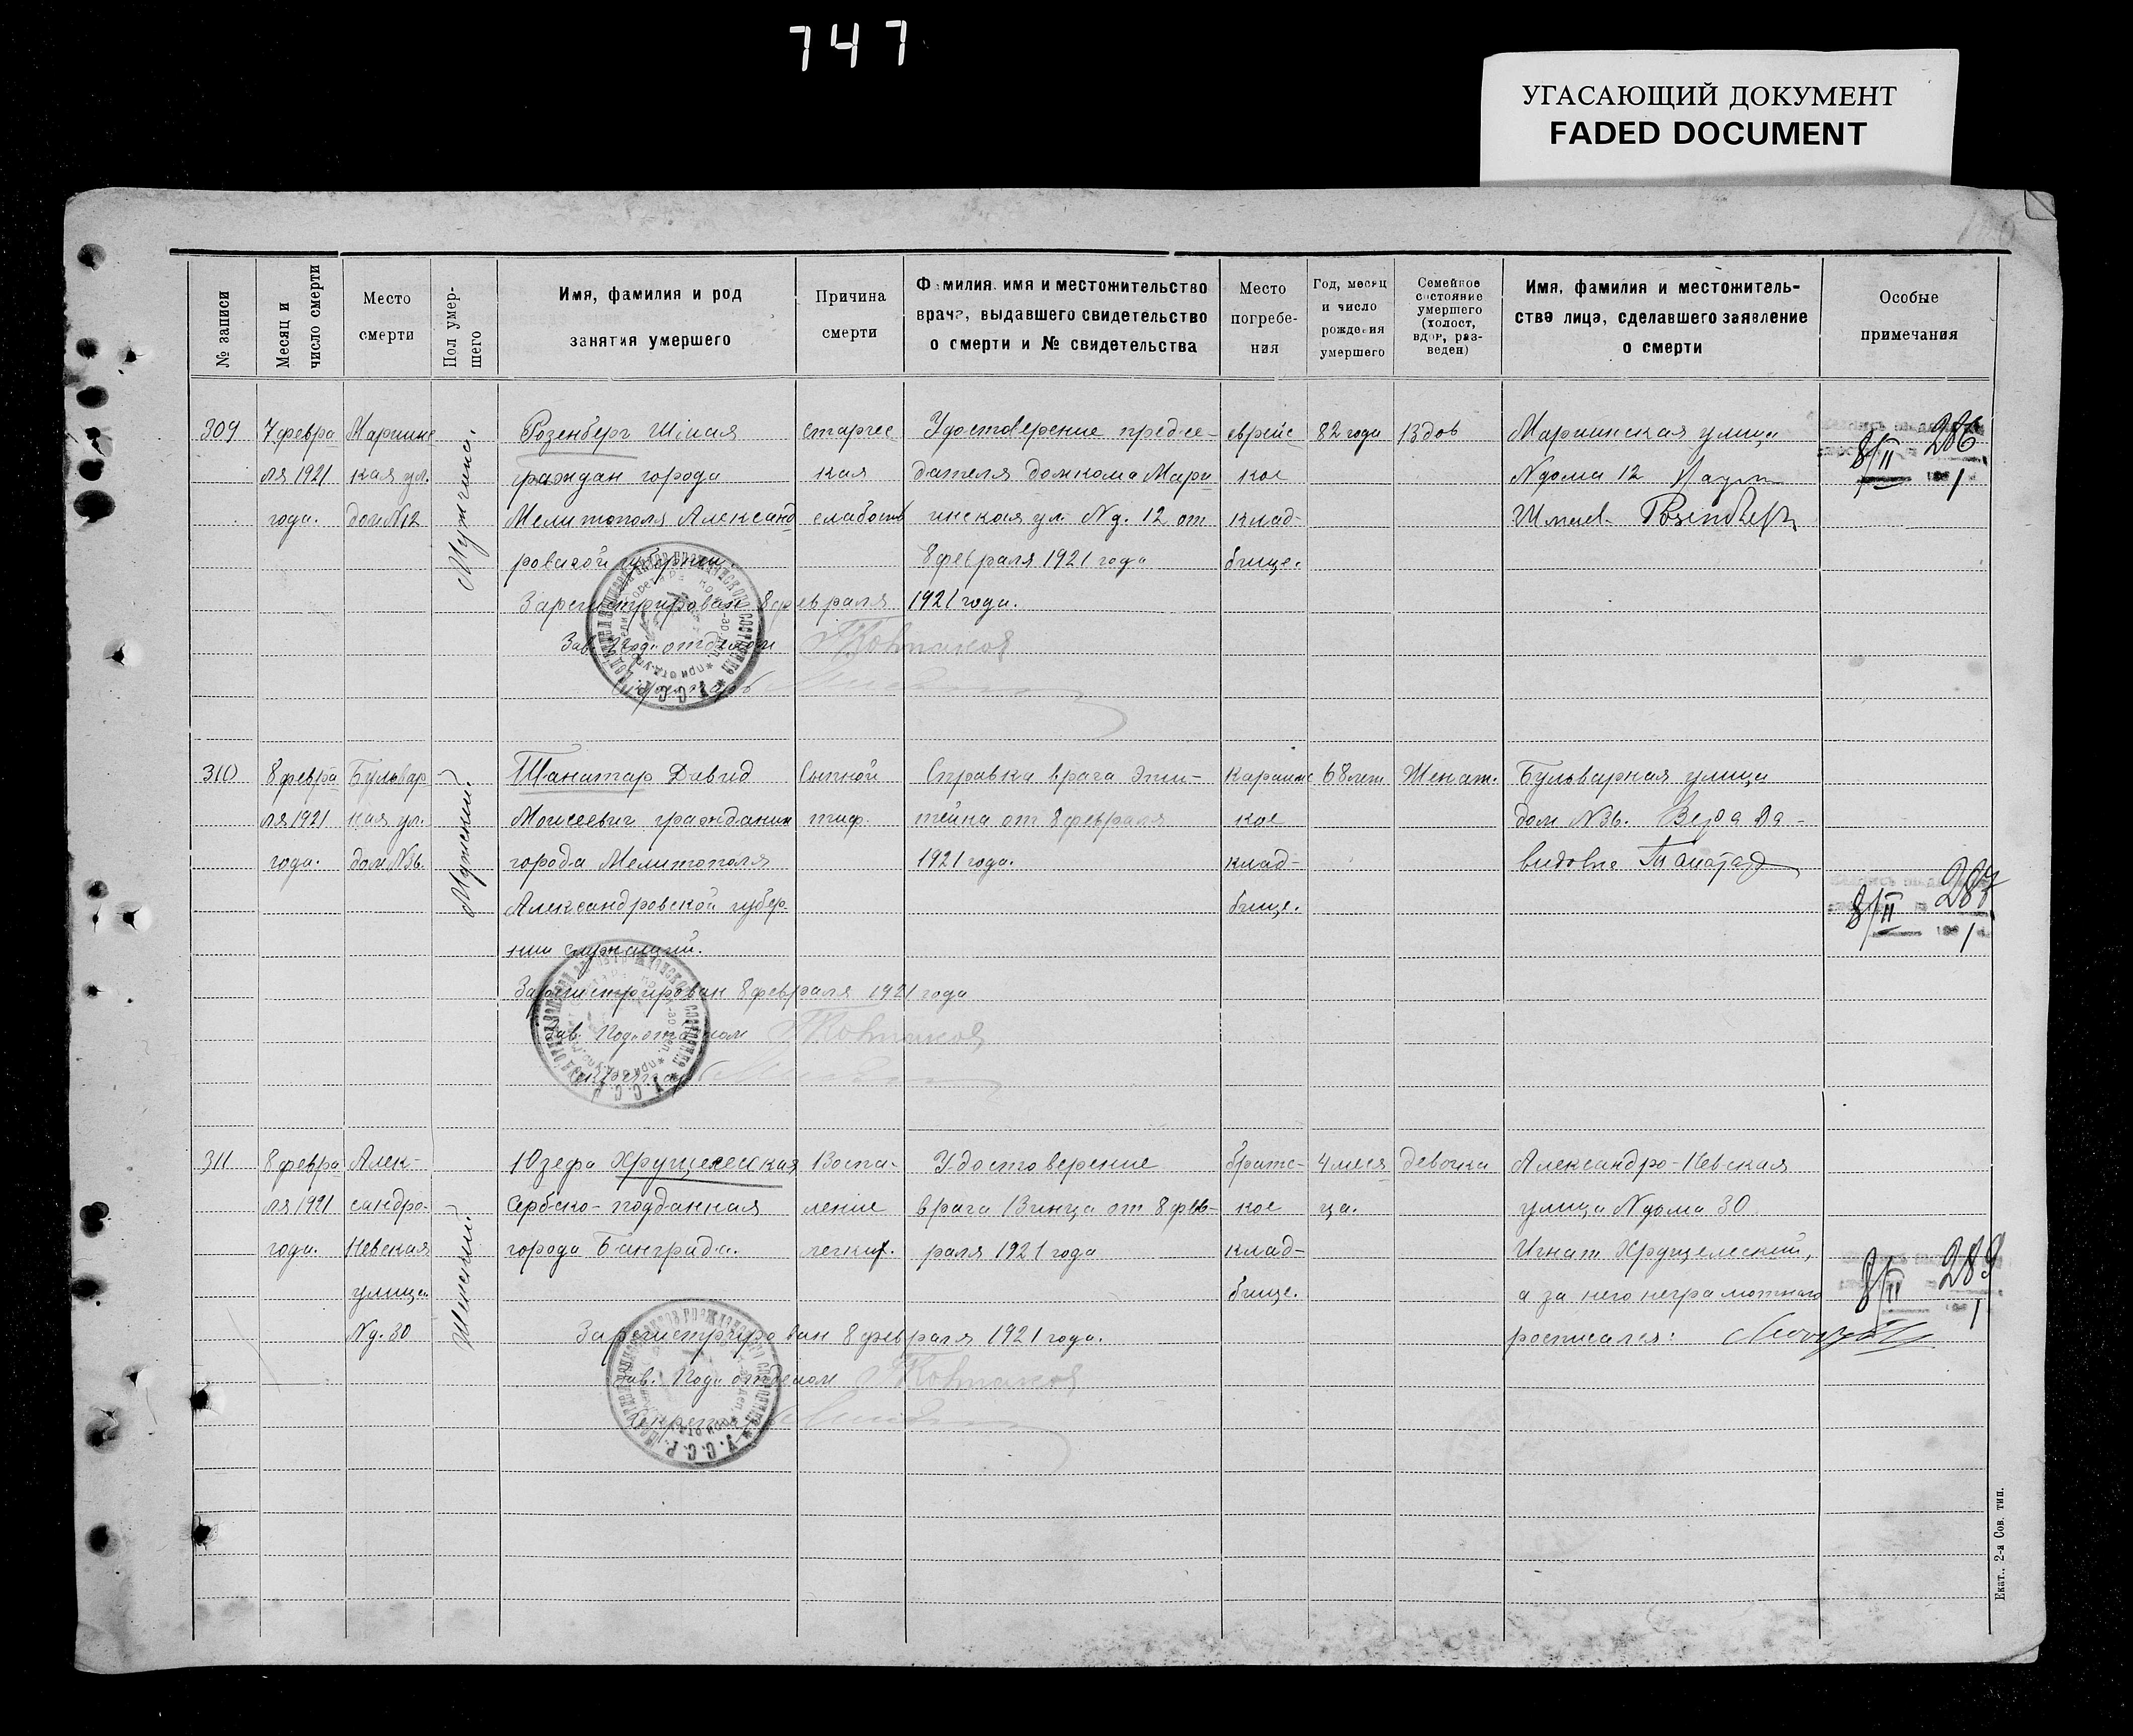 747
УГАСАЮЩИЙ ДОКУМЕНТ
FADED DOCUMENT
№ записи
Месяц и
число смерти
Место
смерти
Пол умер-
шего
Имя, фамилия и род
занятия умершего
Причина
смерти
Фамилия, имя и местожительство
врача, выдавшего свидетельство
о смерти и № свидетельства
Место
погребе-
ния
Год, месяц
и число
рождения
умершего
Семейное
состояние
умершего
(холост,
вдов, раз-
веден)
Имя, фамилия и местожитель-
ство лица, сделавшего заявление
о смерти
Особые
примечания
309
7 февра
ля 1921
года.
Мариинс
кая ул.
дом №12
Мужчина.
Розенберг
граждан города
Мелитополя Александ
ровской губернии.
Зарегистрирован 8 февраля 1921 года.
Зав. Под. отделом
Секретарь
старчес
кая
слабость
Удостоверение предсе-
дателя домкома Мари
инская ул. № д. 12 от
8 февраля 1921 года
еврейс
кое
клад-
бище.
82 года
Вдов
Мариинская улица
№ дома 12
8/II 286
1
310
8 февра
ля 1921
года.
Бульвар
ная ул.
дом №36.
Мужский.
Танатар Давид
Моисеевич гражданин
города Мелитополя
Александровской губер-
нии служащий.
Зарегистрирован 8 февраля 1921 года
Зав. Под. отделом
Секретарь
Сыпной
тиф.
Справка врача Эпш-
тейна от 8 февраля
1921 года.
Караимс
кое
клад-
бище.
68 лет
Женат.
Бульварная улица
дом №36. Вера Да-
видовна Танатар
8/II 287
1
311
8 февра
ля 1921
года.
Алек-
сандро-
Невская
улица
№ д. 30
Женский.
Юзефа Хрущелеская
Сербско-подданная
города
Зарегистрирован 8 февраля 1921 года.
Зав. Под. отделом
Секретарь
Воспа-
ление
легких.
Удостоверение
врача Винца от 8 фев-
раля 1921 года
братс-
кое
клад-
бище.
4 меся
ца.
девочка
Александро-Невская
улица № дома 30
Игнат Хрущелеский,
а за него неграмотного
росписался:
8/II 289
1
Екат., 2-я Сов. тип.